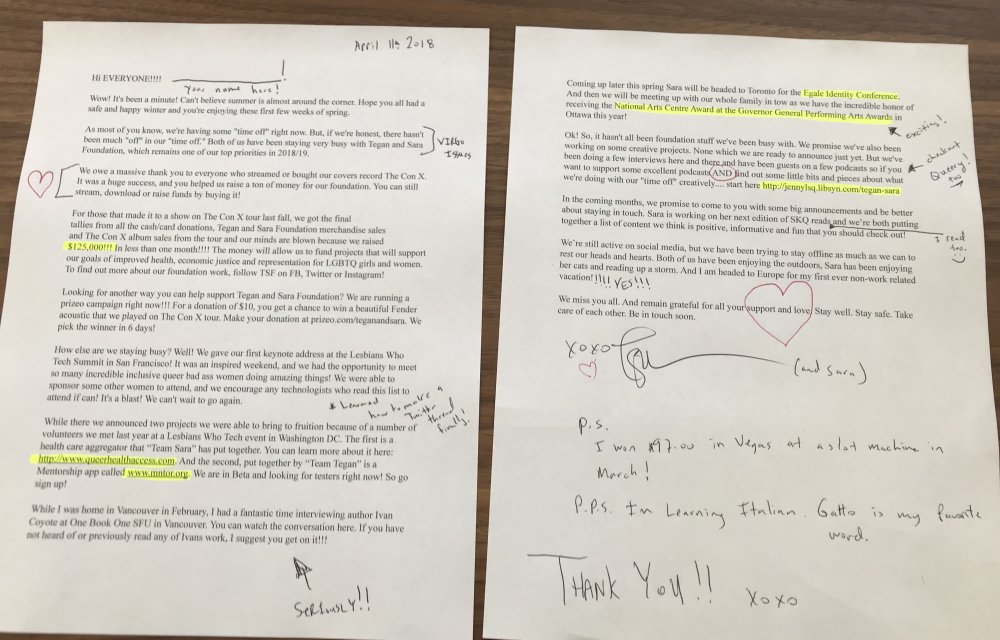 April 11th 2018
Hi EVERYONE!!!! ____________!
Your name here!
Wow! It's been a minute! Can't believe summer is almost around the corner. Hope you all had a
safe and happy winter and you're enjoying these first few weeks of spring.
As most of you know, we're having some "time off" right now. But, if we're honest, there hasn't
been much "off" in our "time off." Both of us have been staying very busy with Tegan and Sara
Foundation, which remains one of our top priorities in 2018/19.
VIRGO
ISSUES
We owe a massive thank you to everyone who streamed or bought our covers record The Con X.
It was a huge success, and you helped us raise a ton of money for our foundation. You can still
stream, download or raise funds by buying it!
For those that made it to a show on The Con X tour last fall, we got the final
tallies from all the cash/card donations, Tegan and Sara Foundation merchandise sales
and The Con X album sales from the tour and our minds are blown because we raised
$125,000!!! In less than one month!!!! The money will allow us to fund projects that will support
our goals of improved health, economic justice and representation for LGBTQ girls and women.
To find out more about our foundation work, follow TSF on FB, Twitter or Instagram!
Looking for another way you can help support Tegan and Sara Foundation? We are running a
prizeo campaign right now!!! For a donation of $10, you get a chance to win a beautiful Fender
acoustic that we played on The Con X tour. Make your donation at prizeo.com/teganandsara. We
pick the winner in 6 days!
How else are we staying busy? Well! We gave our first keynote address at the Lesbians Who
Tech Summit in San Francisco! It was an inspired weekend, and we had the opportunity to meet
so many incredible inclusive queer bad ass women doing amazing things! We were able to
sponsor some other women to attend, and we encourage any technologists who read this list to
attend if can! It's a blast! We can't wait to go again.
* Learned how to make a
Twitter
thread
finally!
While there we announced two projects we were able to bring to fruition because of a number of
volunteers we met last year at a Lesbians Who Tech event in Washington DC. The first is a
health care aggregator that "Team Sara" has put together. You can learn more about it here:
http://www.queerhealthaccess.com. And the second, put together by "Team Tegan" is a
Mentorship app called www.mntor.org. We are in Beta and looking for testers right now! So go
sign up!
While I was home in Vancouver in February, I had a fantastic time interviewing author Ivan
Coyote at One Book One SFU in Vancouver. You can watch the conversation here. If you have
not heard of or previously read any of Ivans work, I suggest you get on it!!!
SERIOUSLY!!
Coming up later this spring Sara will be headed to Toronto for the Egale Identity Conference.
And then we will be meeting up with our whole family in tow as we have the incredible honor of
receiving the National Arts Centre Award at the Governor General Performing Arts Awards in
Ottawa this year!
exciting!
Ok! So, it hasn't all been foundation stuff we've been busy with. We promise we've also been
working on some creative projects. None which we are ready to announce just yet. But we've
been doing a few interviews here and there and have been guests on a few podcasts so if you
want to support some excellent podcasts AND find out some little bits and pieces about what
we're doing with our "time off" creatively.... start here http://jennylsq.libsyn.com/tegan-sara
checkout
Queery!
too
In the coming months, we promise to come to you with some big announcements and be better
about staying in touch. Sara is working on her next edition of SKQ reads and we're both putting
together a list of content we think is positive, informative and fun that you should check out!
I read
too.
We're still active on social media, but we have been trying to stay offline as much as we can to
rest our heads and hearts. Both of us have been enjoying the outdoors, Sara has been enjoying
her cats and reading up a storm. And I am headed to Europe for my first ever non-work related
vacation! !!!! YES!!!
We miss you all. And remain grateful for all your support and love. Stay well. Stay safe. Take
care of each other. Be in touch soon.
XOXO
(and Sara)
P.S.
I won $97.00 in Vegas at a slot machine in
March!
P.P.S. I'm Learning Italian. Gatto is my favorite
word.
THANK YOU!! XOXO